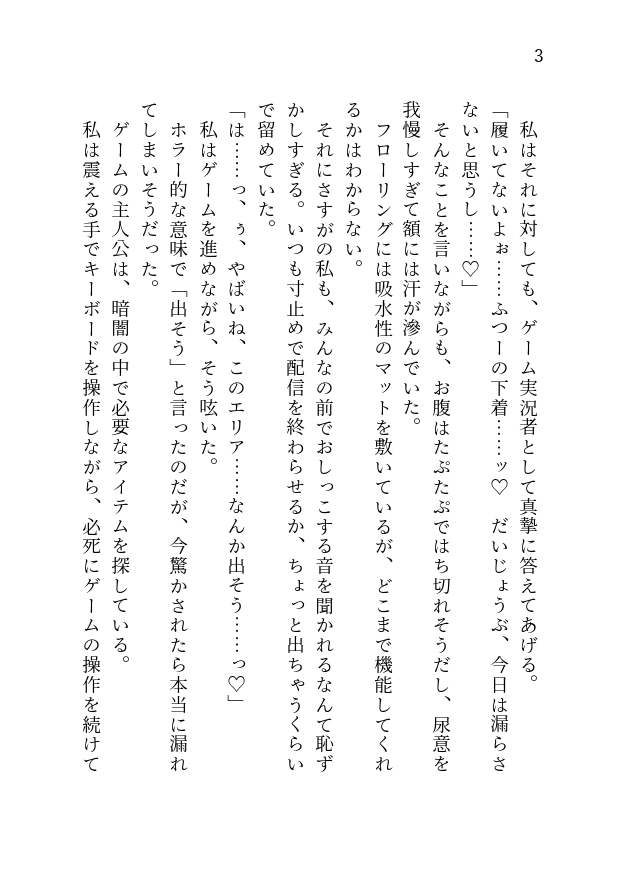 3
私はそれに対しても、ゲーム実況者として真摯に答えてあげる。
「履いてないよぉ……ふつーの下着……ッ♡　だいじょうぶ、今日は漏らさ
ないと思うし……♡」
そんなことを言いながらも、お腹はたぷたぷではち切れそうだし、尿意を
我慢しすぎて額には汗が滲んでいた。
フローリングには吸水性のマットを敷いているが、どこまで機能してくれ
るかはわからない。
それにさすがの私も、みんなの前でおしっこする音を聞かれるなんて恥ず
かしすぎる。いつも寸止めで配信を終わらせるか、ちょっと出ちゃうくらい
で留めていた。
「は……っ、ぅ、やばいね、このエリア……なんか出そう……っ♡」
私はゲームを進めながら、そう呟いた。
ホラー的な意味で「出そう」と言ったのだが、今驚かされたら本当に漏れ
てしまいそうだった。
ゲームの主人公は、暗闇の中で必要なアイテムを探している。
私は震える手でキーボードを操作しながら、必死にゲームの操作を続けて